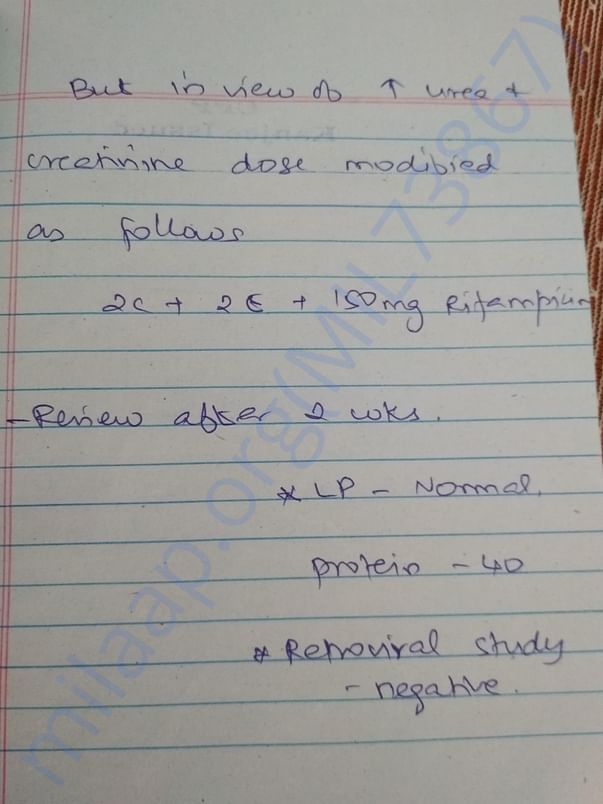 But in view of ↑ urea +
creatinine dose modified
as follows
2C + 2E + 150mg Rifampicin
- Review after 2 wks.
* LP - Normal.
protein - 40
* Retroviral study
- negative.
milaap.org(MIL73867)